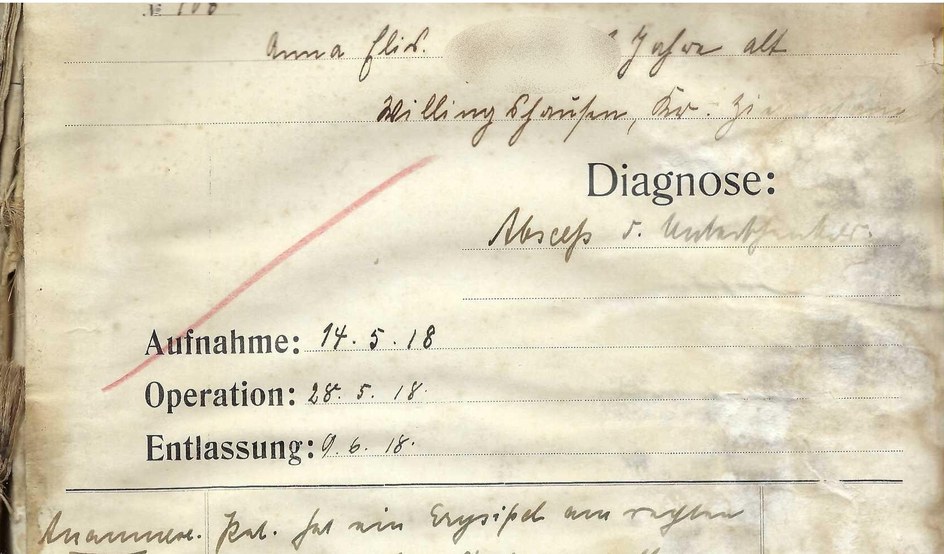 № 108
Anna Elis. Jahre alt
Willingshausen, Kr.
Diagnose:
Abscess d. Unterschenkels.
Aufnahme: 14. 5. 18
Operation: 28. 5. 18.
Entlassung: 9. 6. 18.
Anamnese. Pat. hat ein Erysipel am rechten